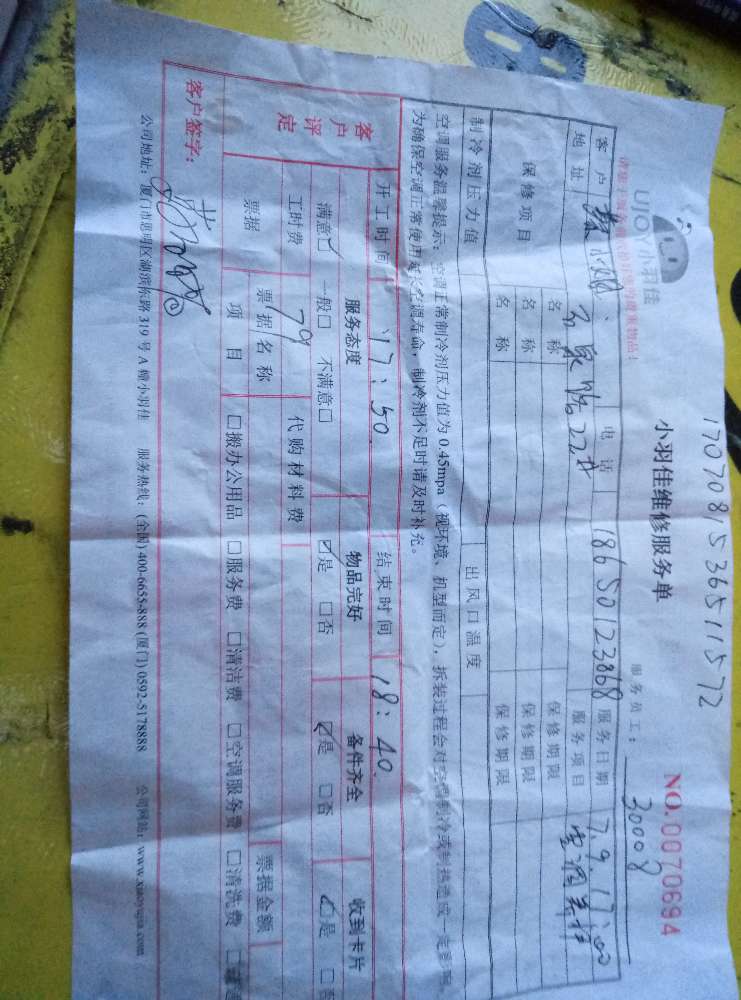 17070815365115 72
UJOY小羽佳
小羽佳维修服务单
NO.0070694
服务员工：30008
客户 电话 18650123868 服务日期 7.9.17:00
地址 22# 服务项目 空调
保修项目 名称 保修期限
名称 保修期限
名称 保修期限
制冷剂压力值 出风口温度
空调服务温馨提示：空调正常制冷剂压力值为0.45mpa（视环境、机型而定），拆装过程会对空调制冷或制热造成一定影响，
为确保空调正常使用延长空调寿命，制冷剂不足时请及时补充。
开工时间 17:50 结束时间 18:40
客户评定 服务态度 物品完好 备件齐全 收到卡片
满意☑ 一般□ 不满意□ ☑是 □否 ☑是 □否 ☑是 □否
工时费 79 代购材料费
票据 票据名称 票据金额
项目 □搬办公用品 □服务费 □清洁费 □空调服务费 □清洗费 □
客户签字：
公司地址：厦门市思明区湖滨东路319号A幢小羽佳 服务热线：(全国) 400-6655-888 (厦门) 0592-5178888 公司网站：www.xiaoyujia.com